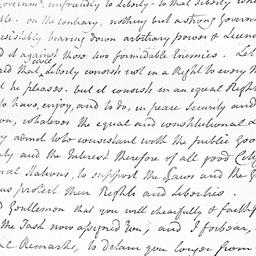 Government, unfriendly to Liberty - to that Liberty whi
ble. on the contrary, nothing but a strong Governm
esistably bearing down arbitrary power & Licen
d it against those two formidable Enemies. Let
ed that civil Liberty consists not in a Right to every M
he pleases. but it consists in an equal Right
to have, enjoy, and to do, in peace Security and
on, whatever the equal and constitutional L
ry admit to be consistent with the public Goo
ty and the Interest therefore of all good Citiz
al Stations, to support the Laws and the G
us protect their Rights and Liberties.
d Gentlemen that you will chearfully & faithf
the Task now assigned You; and I forbear,
al Remarks, to detain you longer from